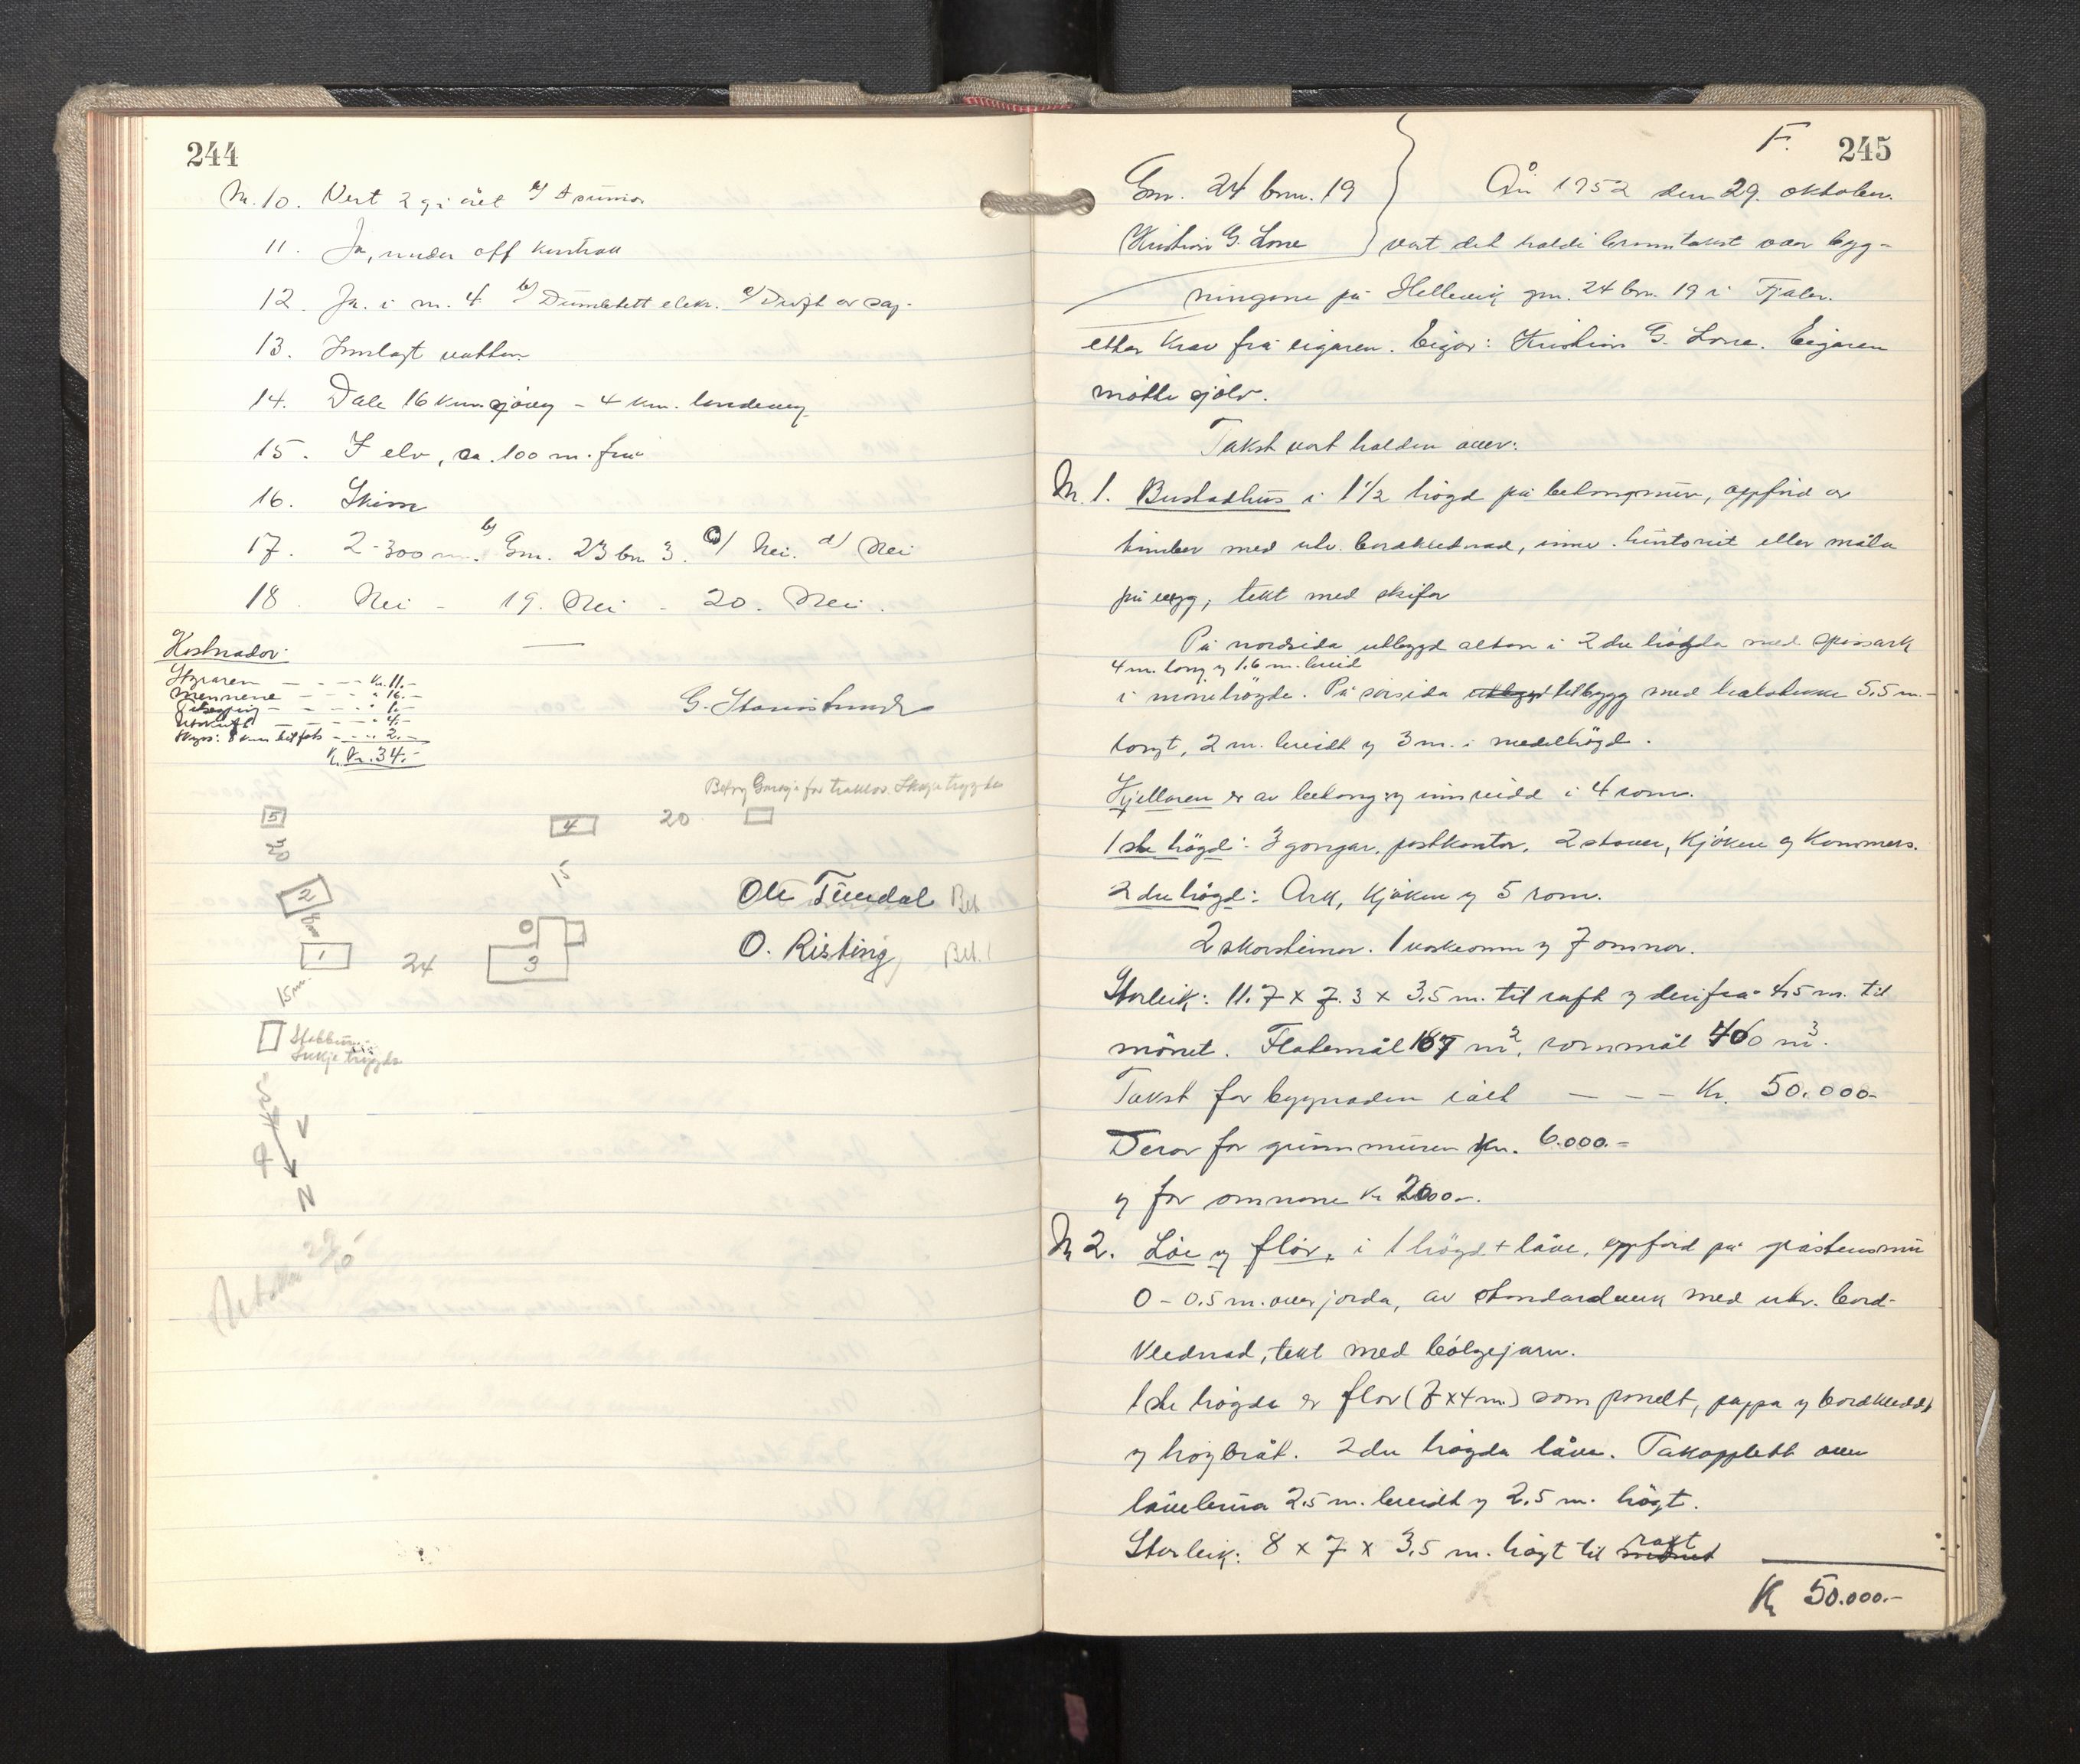 244
M. 10. Vert 2 g i året b/
11. Ja, under off kontroll
12. Ja. i m. 4 b/ elekr. c/ Drift av sag.
13. Innlagt vatten
14. Dale 16 km. sjöveg - 4 km. landeveg
15. I elv, ca. 100 m. frå
16.
17. 2-300 m. b/ Gm. 23 bn 3. c/ Nei. d/ Nei
18. Nei - 19. Nei - 20. Nei.
Kostnader:
Styraren - - - Kr. 11.-
Mennene - - - " 16.-
- - - " 1.-
Utskrift - - - " 4.-
Skyss: 8 km til fots - - - " 2.-
Kr. 34.-
G.
Bet og Garasje for traktor. Skuje trygda
5
4
20
20
15
2
Ole Tundal Bet
1
24
3
O. Risting Bet.
15 m.
Stabbur
Skuje trygda
N
Betalt 29/10
F. 245
Gm. 24 bnr. 19 } År 1952 den 29. oktober
Kristian G. Lone } vart det halde branntakst over byg-
ningane på Hellevik gm. 24 bn. 19 i Fjaler.
etter krav frå eigaren. Eigar: Kristian G. Lone. Eigaren
møtte sjølv.
Takst vart halden over:
M. 1. Bustadhus i 1 1/2 högd på betongmur, oppförd av
timber med utv. bordklednad, innv. huntonit eller måla
på vegg, tekt med skifer
På nordsida utbygd altan i 2dre högda med spissark
4 m. lang og 1.6 m. breid
i mönehögde. På sörsida utbygd tilbygg med 5.5 m.
langt, 2 m. breidt og 3 m. i medelhögd.
Kjellaren er av betong og innreidd i 4 rom.
1ste högd: 3 gongar, postkontor, 2 stover, kjöken og kammers.
2dre högd: Ark, kjöken og 5 rom.
2 skorsteinar. 1 vaskeomn og 7 omnar.
Storleik: 11.7 x 7.3 x 3.5 m. til raft og derifrå 4.5 m. til
mönet. Flatemål 187 m², rommål 406 m³.
Takst for bygnaden i alt - - - Kr. 50.000-
Derav for grunnmuren Kr. 6.000.-
og for omnane kr 2000-.
M 2. Löe og flor, i 1 högd + låve, oppförd på gråsteinsmur
0 - 0.5 m. over jorda, av standardverk med utv. bord-
klednad, tekt med bölgjejarn.
1ste högda er flor (7x4 m.) som panelt, pappa og bordkledd
og högbrot. 2dre högda låve. Takopplett over
låvebrua 2.5 m. breidt og 2.5 m. högt.
Storleik: 8 x 7 x 3.5 m. högt til mönet raft
Kr 50.000.-